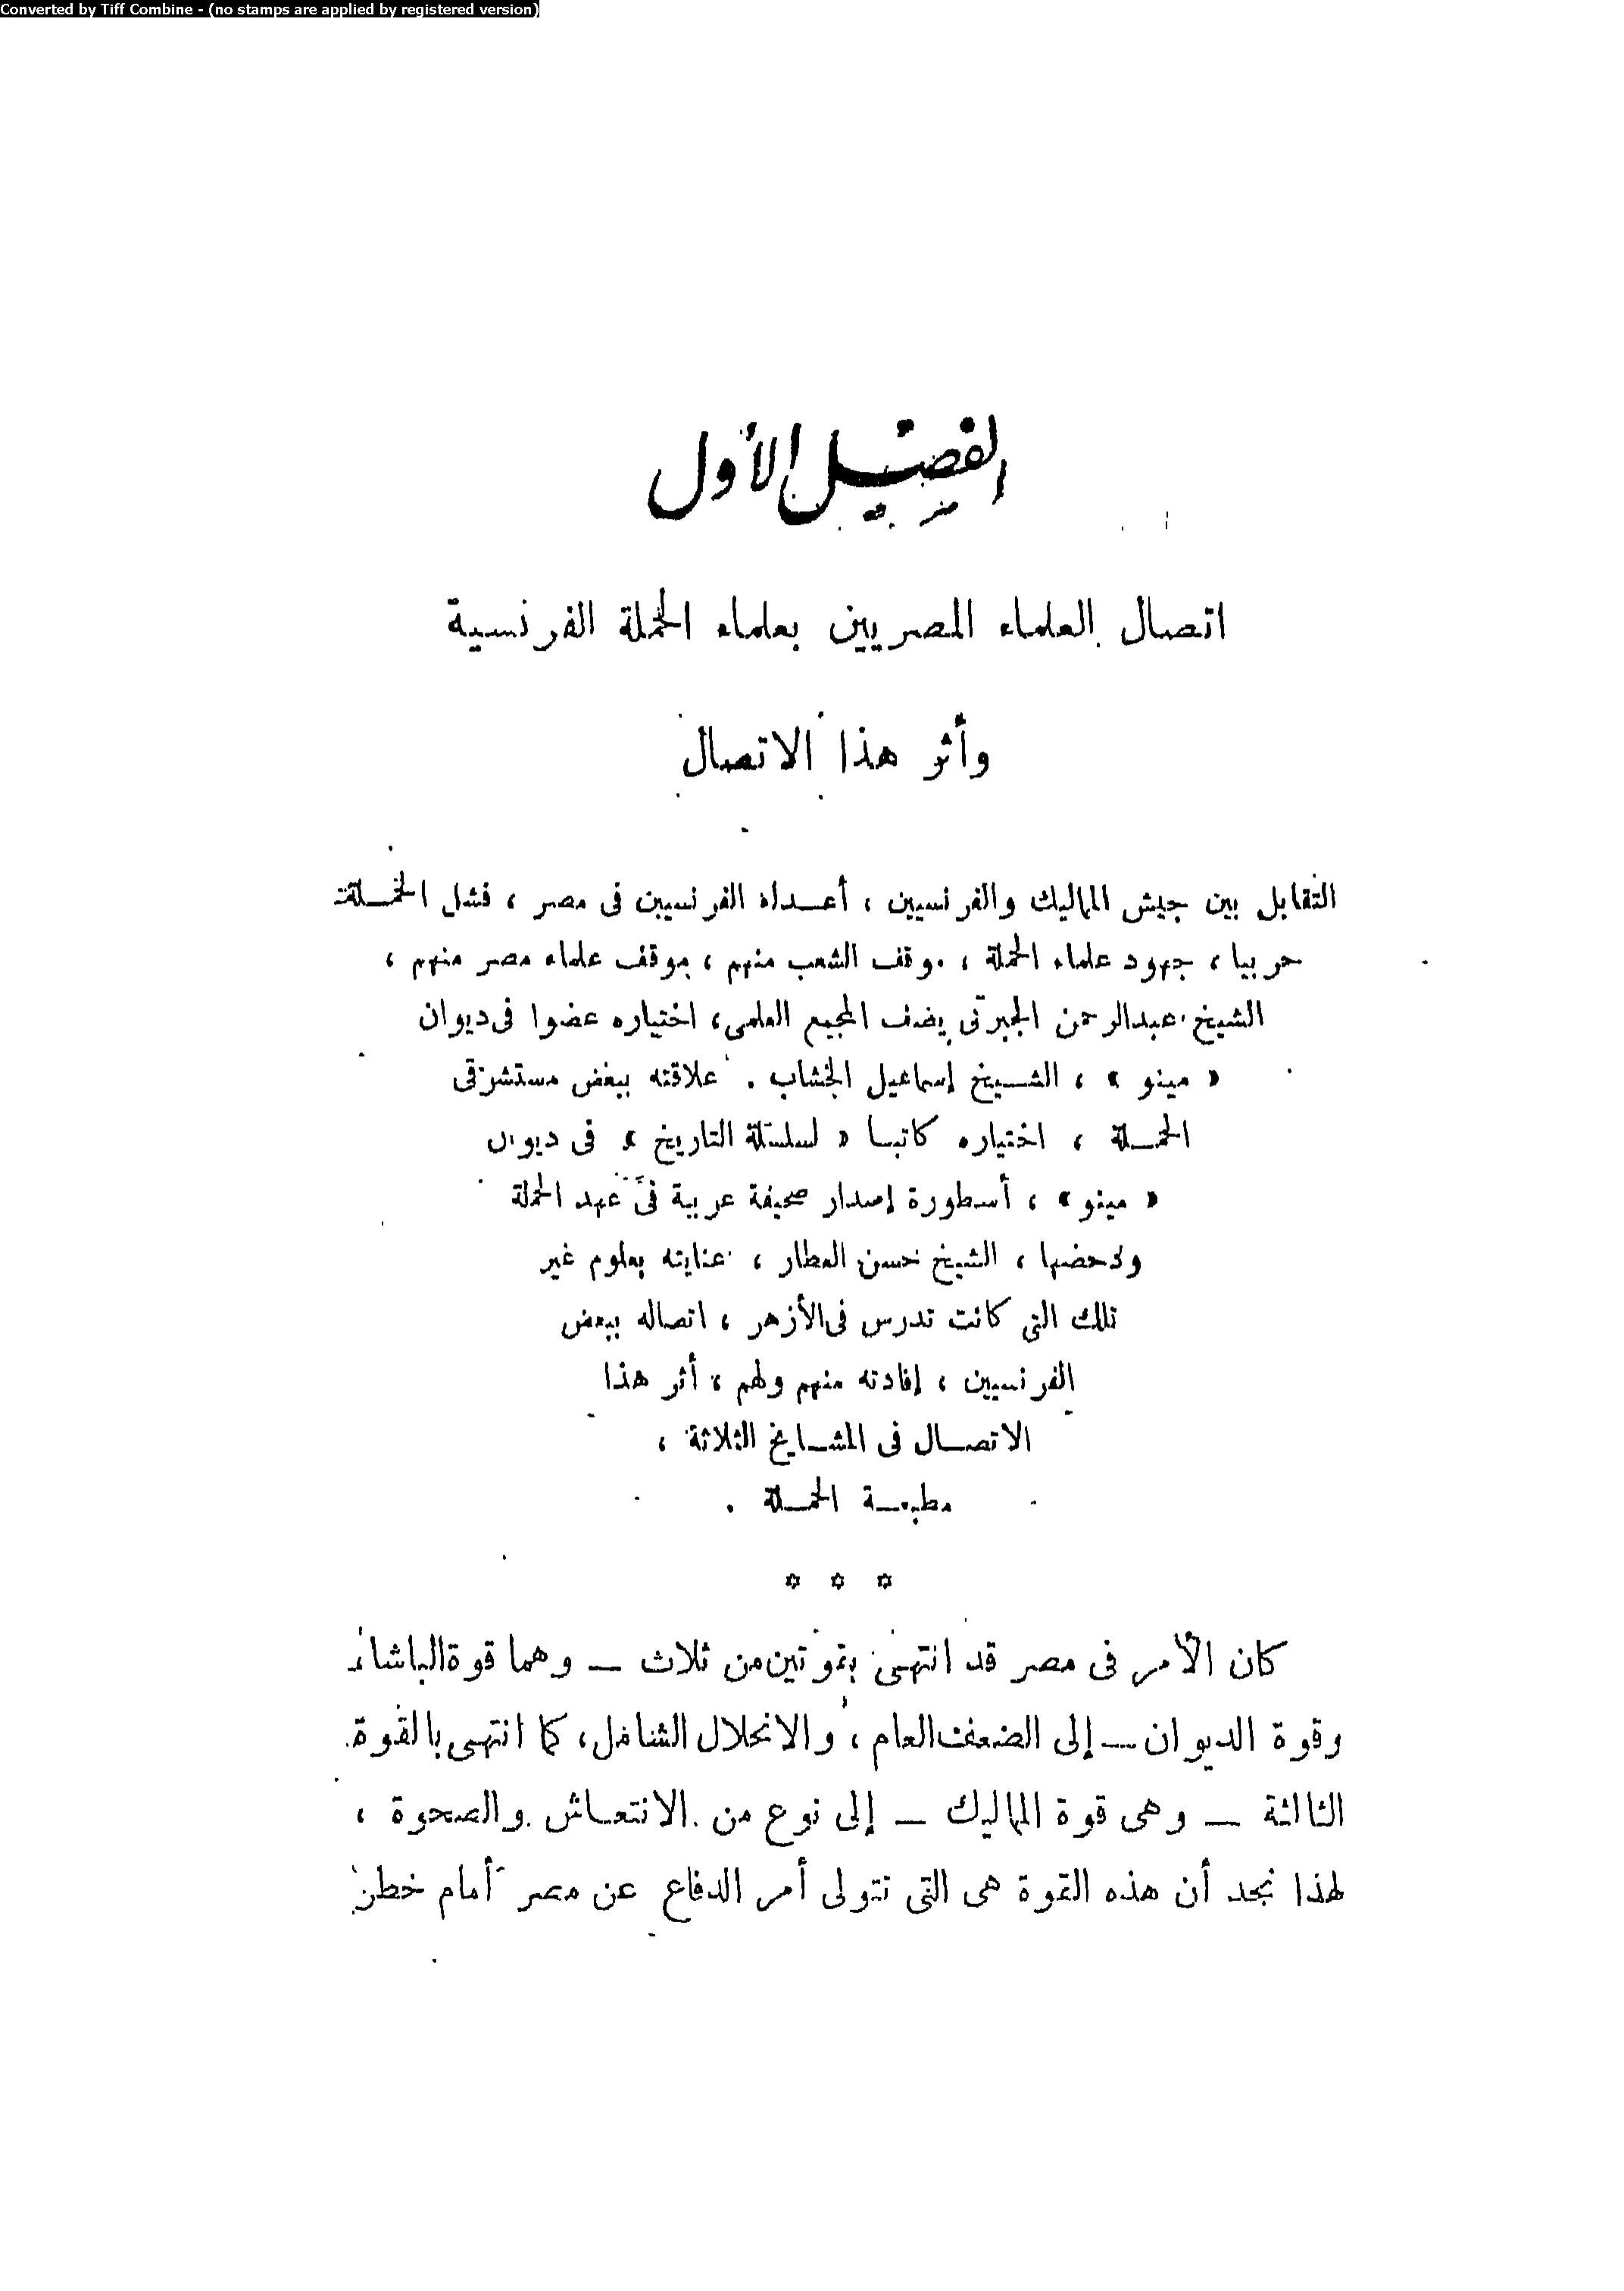 Converted by Tiff Combine - (no stamps are applied by registered version)
الفصل الأول
اتصال العلماء المصريين بعلماء الحملة الفرنسية
وأثر هذا الاتصال
التقابل بين جيش المماليك والفرنسيين ، أعداء الفرنسيين فى مصر ، فشل الحملة
حربيا ، جهود علماء الحملة ، موقف الشعب منهم ، موقف علماء مصر منهم ،
الشيخ عبدالرحمن الجبرتى يصف المجمع العلمى ، اختياره عضوا فى ديوان
« مينو » ، الشيخ إسماعيل الخشاب . علاقته ببعض مستشرقى
الحملة ، اختياره كاتبا « لسلسلة التاريخ » فى ديوان
« مينو » ، أسطورة إصدار صحيفة عربية فى عهد الحملة
ودحضها ، الشيخ حسن العطار ، عنايته بعلوم غير
تلك التى كانت تدرس فى الأزهر ، اتصاله ببعض
الفرنسيين ، إفادته منهم ولهم ، أثر هذا
الاتصال فى المشايخ الثلاثة ،
مطبعة الحملة .
* * *
كان الأمر فى مصر قد انتهى بقوتين من ثلاث — وهما قوة الباشا
وقوة الديوان — إلى الضعف العام ، والانحلال الشامل ، كما انتهى بالقوة
الثالثة — وهى قوة المماليك — إلى نوع من الانتعاش والصحوة ،
لهذا نجد أن هذه القوة هى التى تتولى أمر الدفاع عن مصر أمام خطر